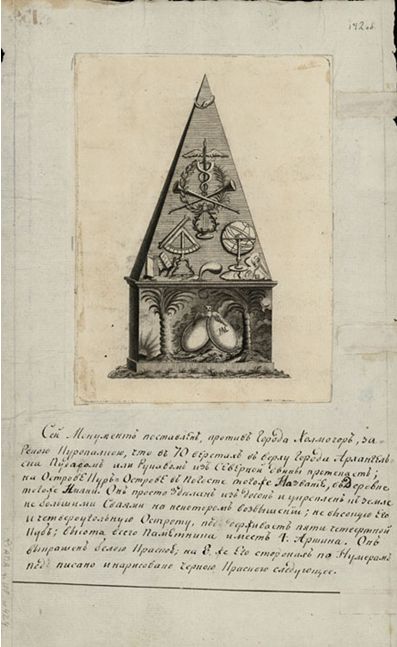 142
Сей Монументъ поставленъ, противъ Города Холмогоръ, за
Рекою Куропалкою, что въ 70 верстахъ въ верху Города Архангель-
ска
изъ Северной Двины протекаетъ;
на Острове Куръ-Острове въ Погосте тогожъ Назватъ, въ деревне
тожъ Онъ просто зделанъ изъ досокъ и укрепленъ въ земле
не большими Сваями на некоторомъ возвышении; не высокую Его
и четвероугольную Острому, поддерживаетъ пяти четвертной
Кубъ; высота всего Памятника иметъ 4. Аршина. Онъ
выкрашенъ белою Краскою; на Его сторонахъ по Нумерамъ
подписано и нарисовано черною Краскою следующее.